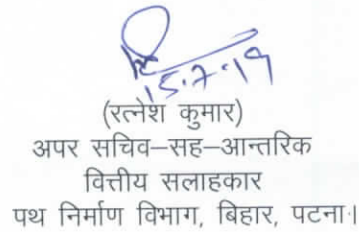 15.7.19
(रत्नेश कुमार)
अपर सचिव–सह–आन्तरिक
वित्तीय सलाहकार
पथ निर्माण विभाग, बिहार, पटना।